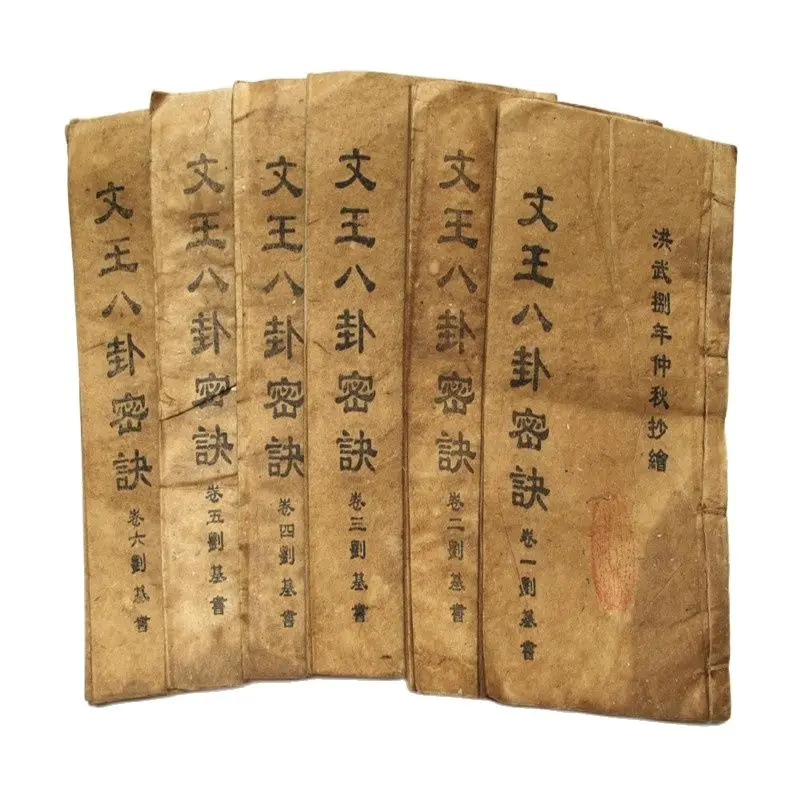 洪武捌年仲秋抄繪
文王八卦密訣 卷一劉基書
文王八卦密訣 卷二劉基書
文王八卦密訣 卷三劉基書
文王八卦密訣 卷四劉基書
文王八卦密訣 卷五劉基書
文王八卦密訣 卷六劉基書